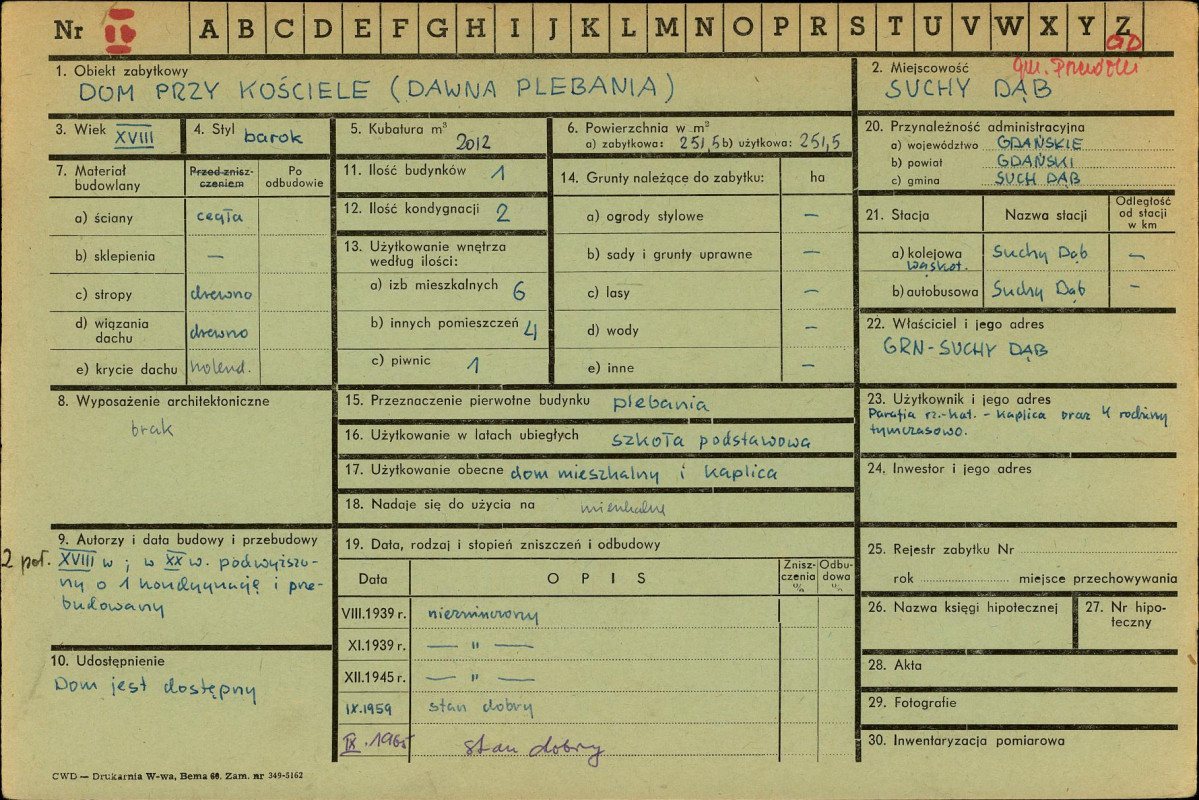 Nr IV A B C D E F G H I J K L M N O P R S T U V W X Y Z
GD
1. Obiekt zabytkowy
DOM PRZY KOŚCIELE (DAWNA PLEBANIA)
2. Miejscowość gm.
SUCHY DĄB
3. Wiek XVIII
4. Styl barok
5. Kubatura m³
2012
6. Powierzchnia w m²
a) zabytkowa: 251,5 b) użytkowa: 251,5
20. Przynależność administracyjna
a) województwo GDAŃSKIE
b) powiat GDAŃSKI
c) gmina SUCH DĄB
7. Materiał budowlany
Przed znisz-
czeniem
Po
odbudowie
a) ściany cegła
b) sklepienia —
c) stropy drewno
d) wiązania
dachu drewno
e) krycie dachu holend.
11. Ilość budynków 1
12. Ilość kondygnacji 2
13. Użytkowanie wnętrza
według ilości:
a) izb mieszkalnych 6
b) innych pomieszczeń 4
c) piwnic 1
14. Grunty należące do zabytku: ha
a) ogrody stylowe —
b) sady i grunty uprawne —
c) lasy —
d) wody —
e) inne —
21. Stacja Nazwa stacji Odległość
od stacji
w km
a) kolejowa Suchy Dąb —
wąskot.
b) autobusowa Suchy Dąb —
22. Właściciel i jego adres
GRN-SUCHY DĄB
8. Wyposażenie architektoniczne
brak
15. Przeznaczenie pierwotne budynku plebania
16. Użytkowanie w latach ubiegłych szkoła podstawowa
17. Użytkowanie obecne dom mieszkalny i kaplica
18. Nadaje się do użycia na mieszkalne
23. Użytkownik i jego adres
Parafia rz.-kat. - kaplica oraz 4 rodziny
tymczasowo.
24. Inwestor i jego adres
9. Autorzy i data budowy i przebudowy
2 poł. XVIII w; w XX w. podwyższo-
ny o 1 kondygnację i prze-
budowany
10. Udostępnienie
Dom jest dostępny
19. Data, rodzaj i stopień zniszczeń i odbudowy
Data OPIS Znisz-
czenia
% Odbu-
dowa
%
VIII.1939 r. niezniszczony
XI.1939 r. — " —
XII.1945 r. — " —
IX.1959 stan dobry
IX.1965 stan dobry
25. Rejestr zabytku Nr
rok miejsce przechowywania
26. Nazwa księgi hipotecznej
27. Nr hipo-
teczny
28. Akta
29. Fotografie
30. Inwentaryzacja pomiarowa
CWD — Drukarnia W-wa, Bema 60. Zam. nr 349-5162